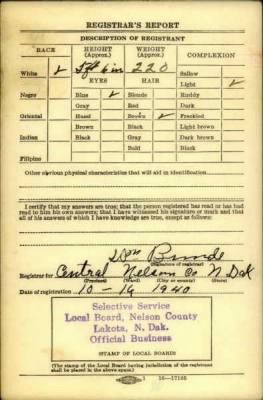 REGISTRAR'S REPORT
DESCRIPTION OF REGISTRANT
RACE HEIGHT (Approx.) WEIGHT (Approx.) COMPLEXION
White ✓ 5 ft 6 in 220 Sallow
Light ✓
EYES HAIR
Negro Blue ✓ Blonde Ruddy
Gray Red Dark
Oriental Hazel Brown ✓ Freckled
Brown Black Light brown
Indian Black Gray Dark brown
Bald Black
Filipino
Other obvious physical characteristics that will aid in identification
I certify that my answers are true; that the person registered has read or has had
read to him his own answers; that I have witnessed his signature or mark and that
all of his answers of which I have knowledge are true, except as follows:
(Signature of registrar)
Registrar for Central Nelson Co N Dak
(Precinct) (Ward) (City or county) (State)
Date of registration 10-16 1940
Selective Service
Local Board, Nelson County
Lakota, N. Dak.
Official Business
STAMP OF LOCAL BOARD
(The stamp of the Local Board having jurisdiction of the registrant shall
be placed in the above space.)
16—17105